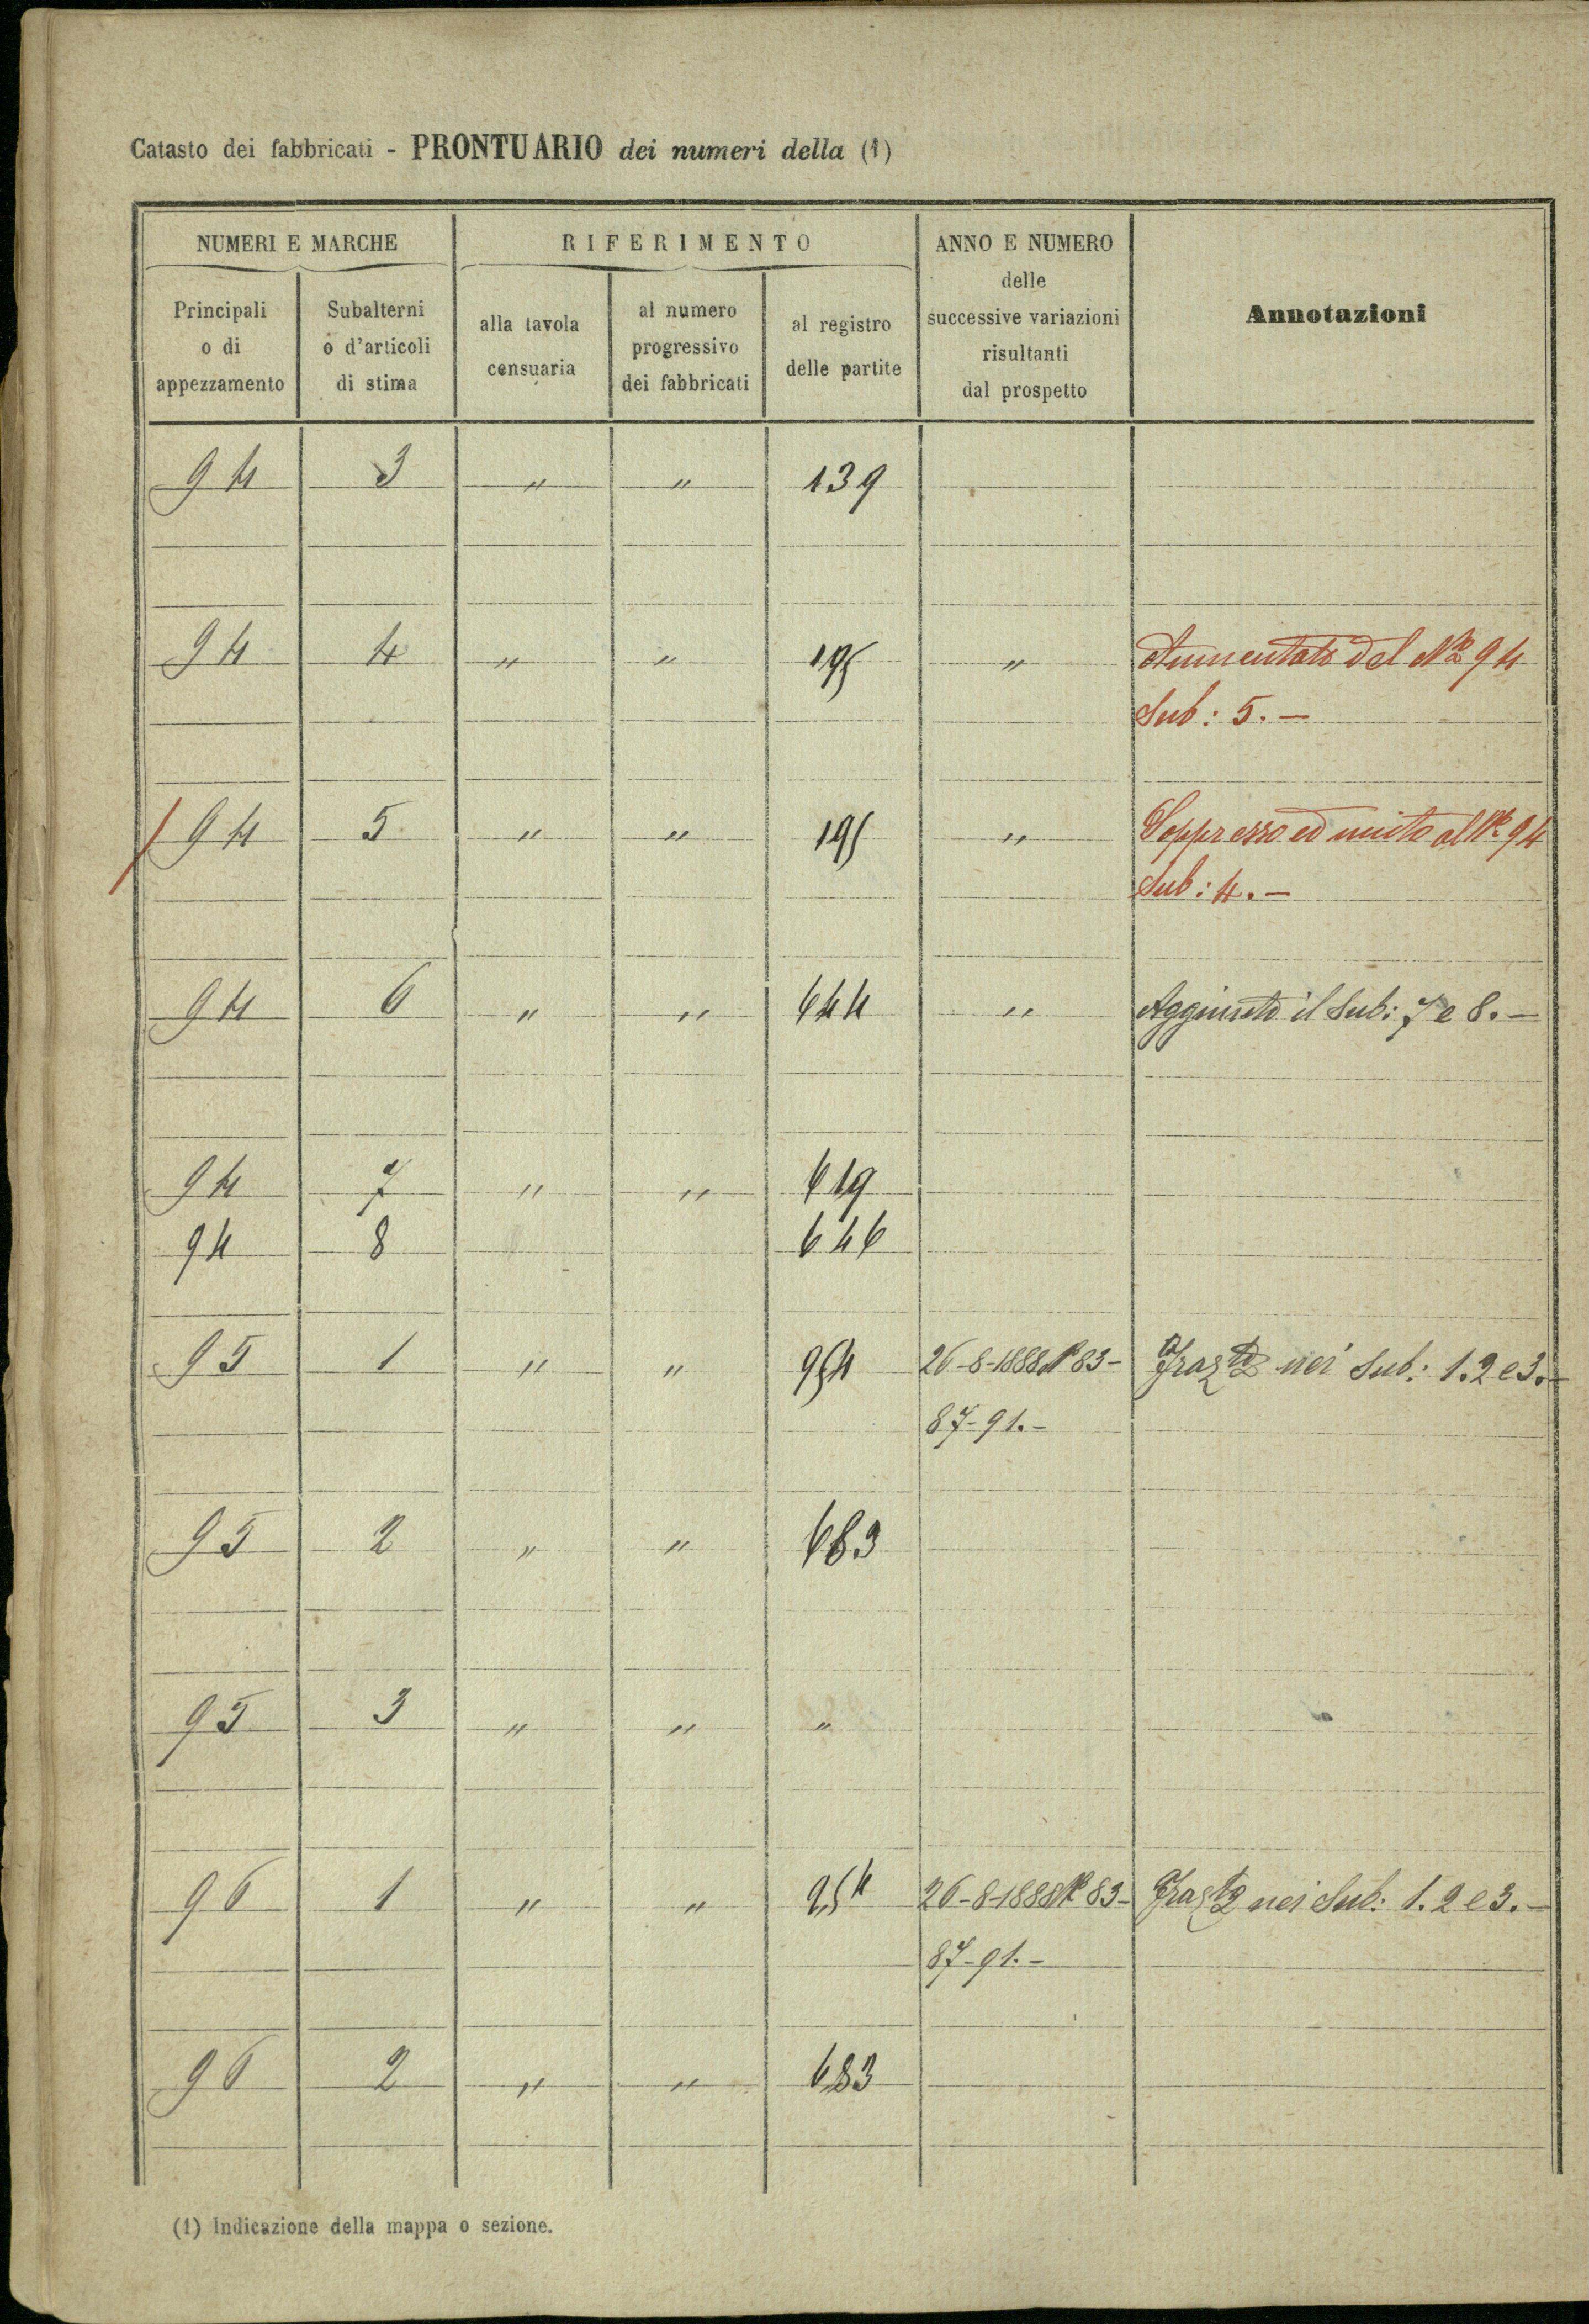 Catasto dei fabbricati - PRONTUARIO dei numeri della (1)
NUMERI E MARCHE
RIFERIMENTO
ANNO E NUMERO
delle
successive variazioni
risultanti
dal prospetto
Annotazioni
Principali
o di
appezzamento
Subalterni
o d'articoli
di stima
alla tavola
censuaria
al numero
progressivo
dei fabbricati
al registro
delle partite
94 3 " " 139
94 4 " " 195 " Aumentato del No 94
Sub: 5. —
94 5 " " 195 " Soppresso ed unito al No 94
Sub: 4. —
94 6 " " 644 " Aggiunto il Sub: 7 e 8. —
94 7 " " 619
94 8 646
95 1 " " 954 26-8-1888 No 83- Frazto nei Sub: 1.2 e 3. —
87-91.-
95 2 " " 683
95 3 " " "
96 1 " " 954 26-8-1888 No 83- Frazto nei Sub: 1.2 e 3. —
87-91.-
96 2 " " 683
(1) Indicazione della mappa o sezione.